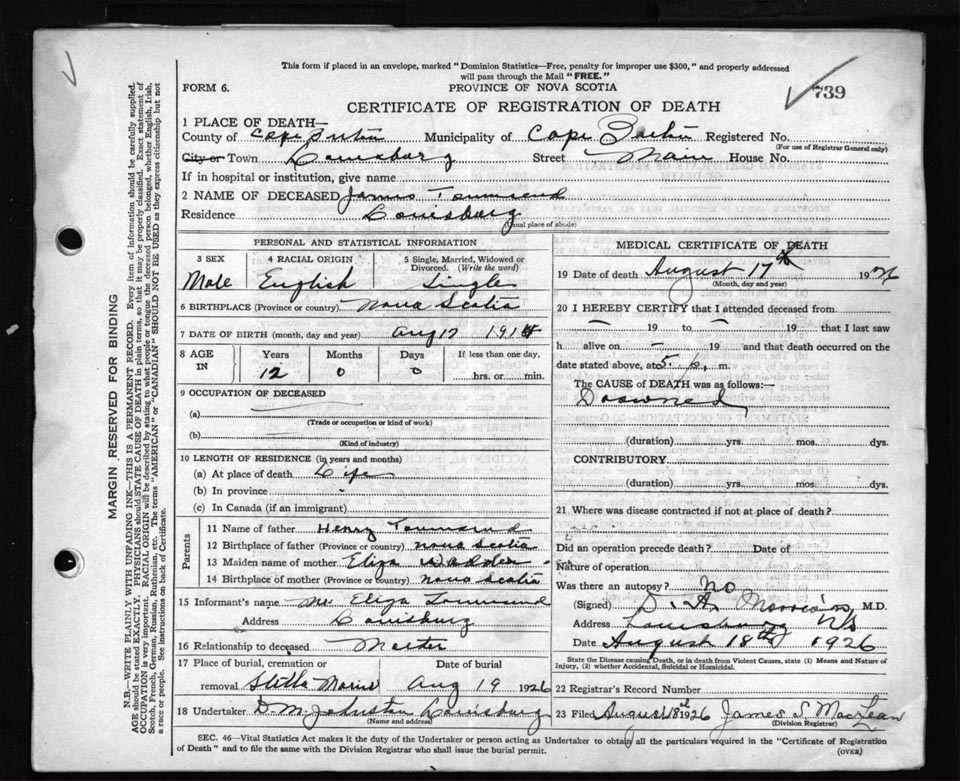 This form if placed in an envelope, marked "Dominion Statistics—Free, penalty for improper use $300," and properly addressed
will pass through the Mail "FREE."
FORM 6.
PROVINCE OF NOVA SCOTIA
739
CERTIFICATE OF REGISTRATION OF DEATH
1 PLACE OF DEATH—
County of Cape Breton Municipality of Cape Breton Registered No.
(For use of Registrar General only)
City or Town Louisburg Street Main House No.
If in hospital or institution, give name
2 NAME OF DECEASED James Townsend
Residence Louisburg
(Usual place of abode)
PERSONAL AND STATISTICAL INFORMATION
3 SEX 4 RACIAL ORIGIN 5 Single, Married, Widowed or Divorced. (Write the word)
Male English Single
6 BIRTHPLACE (Province or country) Nova Scotia
7 DATE OF BIRTH (month, day and year) Aug 17 1914
8 AGE IN Years Months Days If less than one day,
12 0 0 hrs. or min.
9 OCCUPATION OF DECEASED
(a)
(Trade or occupation or kind of work)
(b)
(Kind of industry)
10 LENGTH OF RESIDENCE (in years and months)
(a) At place of death Life
(b) In province -
(c) In Canada (if an immigrant)
Parents
11 Name of father Henry Townsend
12 Birthplace of father (Province or country) Nova Scotia
13 Maiden name of mother Eliza
14 Birthplace of mother (Province or country) Nova Scotia
15 Informant's name Mrs Eliza Townsend
Address Louisburg
16 Relationship to deceased Mother
17 Place of burial, cremation or removal Stella Maris
Date of burial Aug 19 1926
18 Undertaker D. M. Johnston Louisburg
(Name and address)
MEDICAL CERTIFICATE OF DEATH
19 Date of death August 17th 1926
(Month, day and year)
20 I HEREBY CERTIFY that I attended deceased from
— 19 to — 19 that I last saw
h alive on — 19 and that death occurred on the
date stated above, at 5 p. m.
The CAUSE of DEATH was as follows:—
Drowned
(duration) yrs. mos. dys.
CONTRIBUTORY
(duration) yrs. mos. dys.
21 Where was disease contracted if not at place of death?
Did an operation precede death? Date of
Nature of operation
Was there an autopsy? no
(Signed) M.D.
Address Louisburg NS
Date August 18th 1926
State the Disease causing Death, or in death from Violent Causes, state (1) Means and Nature of
Injury, (2) whether Accidental, Suicidal or Homicidal.
22 Registrar's Record Number
23 Filed August 1926 James S. MacLean
(Division Registrar)
SEC. 46—Vital Statistics Act makes it the duty of the Undertaker or person acting as Undertaker to obtain all the particulars required in the "Certificate of Registration
of Death" and to file the same with the Division Registrar who shall issue the burial permit.
(OVER)
MARGIN RESERVED FOR BINDING
N.B.—WRITE PLAINLY WITH UNFADING INK—THIS IS A PERMANENT RECORD. Every item of information should be carefully supplied.
AGE should be stated EXACTLY. PHYSICIANS should STATE CAUSE OF DEATH in plain terms, so that it may be properly classified. Exact statement of
OCCUPATION is very important. RACIAL ORIGIN will be described by stating to what people or tongue the deceased person belonged, whether English, Irish,
Scotch, French, German, Russian, Ruthenian, etc. The terms "AMERICAN" or "CANADIAN" SHOULD NOT BE USED as they express citizenship but not
a race or people. See instructions on back of Certificate.